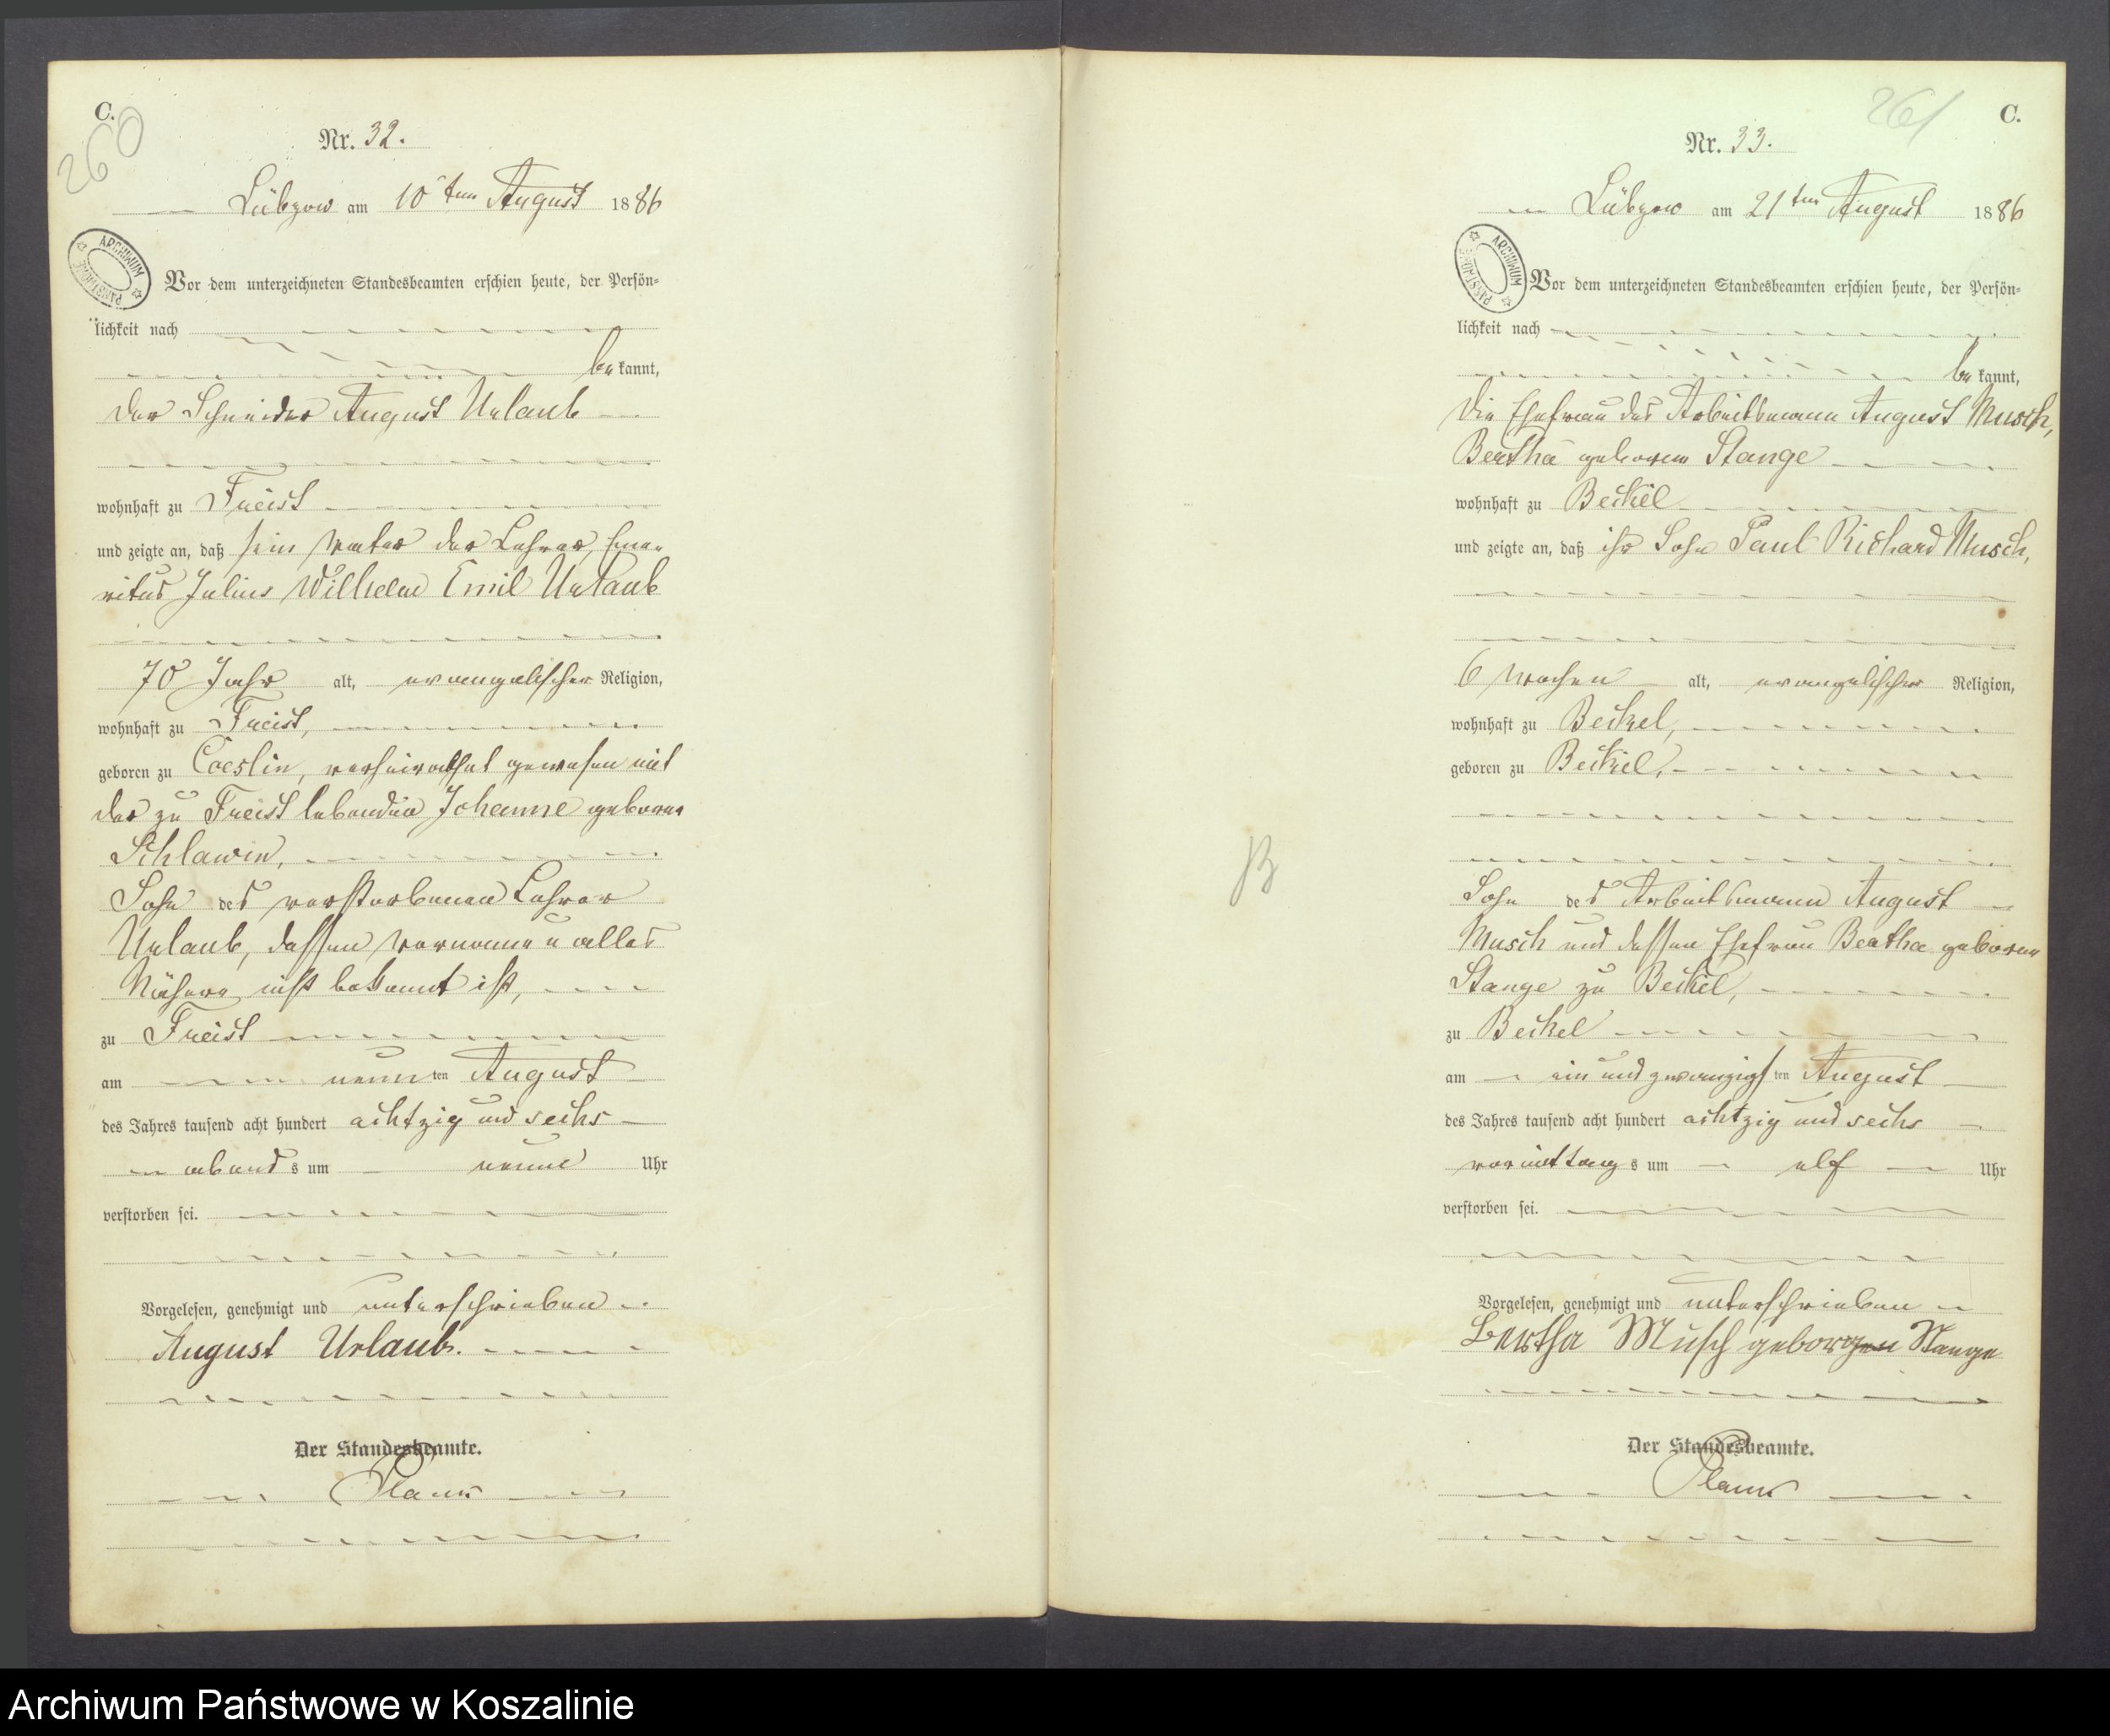 C.
260
Nr. 32.
Lübzow am 10ten August 1886
ARCHIWUM PAŃSTWOWE
Vor dem unterzeichneten Standesbeamten erschien heute, der Persön-
lichkeit nach
bekannt,
der Schneider August Urlaub
wohnhaft zu Freist
und zeigte an, daß sein Vater der Lehrer, Eme-
ritus Julius Wilhelm Emil Urlaub
70 Jahr alt, evangelischer Religion,
wohnhaft zu Freist,
geboren zu Coeslin, verheirathet gewesen mit
der zu Freist lebenden Johanne geboren
Schlawin,
Sohn des verstorbenen Lehrer
Urlaub, dessen Vorname u alles
Nähere nicht bekannt ist,
zu Freist
am neunten August
des Jahres tausend acht hundert achtzig und sechs
abends um neun Uhr
verstorben sei.
Vorgelesen, genehmigt und unterschrieben
August Urlaub.
Der Standesbeamte.
261
C.
Nr. 33.
Lübzow am 21ten August 1886
ARCHIWUM PAŃSTWOWE
Vor dem unterzeichneten Standesbeamten erschien heute, der Persön-
lichkeit nach
bekannt,
die Ehefrau des Arbeitsmann August Musch,
Bertha geboren Stange
wohnhaft zu Beckel
und zeigte an, daß ihr Sohn Paul Richard Musch,
6 Wochen alt, evangelischer Religion,
wohnhaft zu Beckel,
geboren zu Beckel,
Sohn des Arbeitsmann August
Musch und dessen Ehefrau Bertha geboren
Stange zu Beckel,
zu Beckel
am ein und zwanzigsten August
des Jahres tausend acht hundert achtzig und sechs
vormittags um elf Uhr
verstorben sei.
Vorgelesen, genehmigt und unterschrieben
Bertha Musch geboren Stange
Der Standesbeamte.
Archiwum Państwowe w Koszalinie